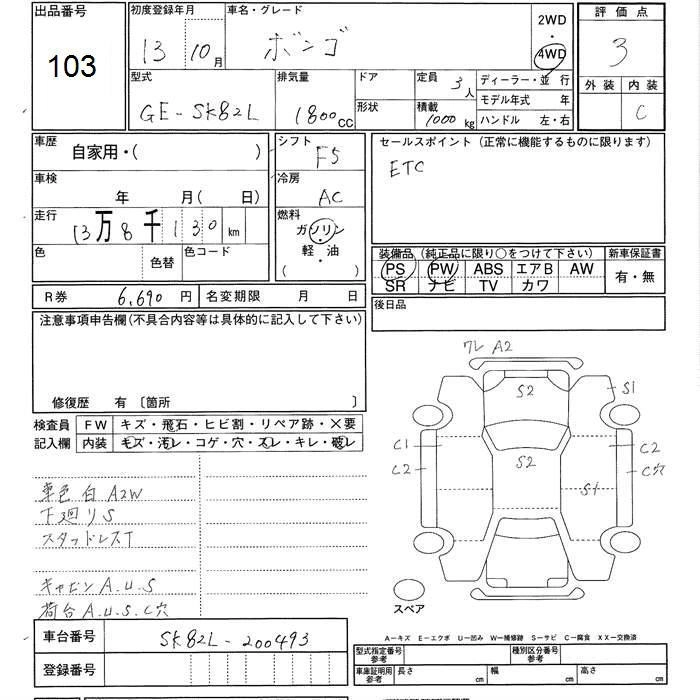 出品番号 初度登録年月 車名・グレード 2WD 評価点
103 13 10月 ボンゴ ・ 4WD 3
型式 排気量 ドア 定員 3人 ディーラー・並行 外装 内装
GE-SK82L 1800CC 形状 積載 1000kg モデル年式 年 C
ハンドル 左・右
車歴 自家用・( ) シフト F5 セールスポイント (正常に機能するものに限ります)
車検 年 月( 日) 冷房 AC ETC
走行 13万8千130km 燃料 ガソリン
色 色替 色コード 軽・油
( )
装備品 (純正品に限り○をつけて下さい) 新車保証書
PS PW ABS エアB AW 有・無
SR ナビ TV カワ
R券 6,690円 名変期限 月 日 後日品
注意事項申告欄(不具合内容等は具体的に記入して下さい)
修復歴 有 〔箇所 〕
検査員 FW キズ・飛石・ヒビ割・リペア跡・×要
記入欄 内装 キズ・汚レ・コゲ・穴・スレ・キレ・破レ
車色 白 A2W
下廻りS
スタッドレスT
キャビン A.U.S
荷台 A.U.S.C穴
ワレ A2
S2 S1
C1 C2
C2 S2 C穴
S1
スペア
車台番号 SK82L-200493
登録番号
A-キズ E-エクボ U-凹み W-補修跡 S-サビ C-腐食 XX-交換済
型式指定番号 参考 種別区分番号 参考
車庫証明用 参考 長さ cm 幅 cm 高さ cm